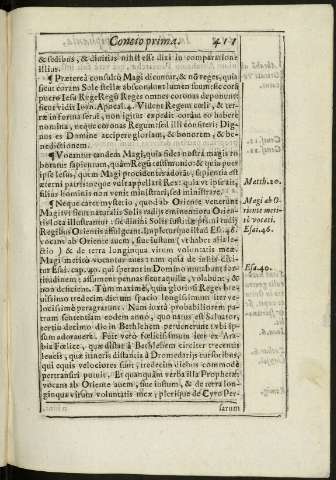 Concio prima. 411
& sedibus, & divitias nihil esse dixi in comparatione
illius.
¶ Præterea consultò Magi dicuntur, & nõ reges, quia
sicut coram Sole stellæ abscondunt lumen suum: sic coram
puero Iesu Rege Regũ Reges omnes coronas deponunt
sicut vidit Ioan. Apocal. 4. Vident Regem cœli, & ter-
ræ in forma servi, non igitur expedit coram eo habere
nomina, neque coronas Regum: sed illi constiterit: Dig-
nus es Domine accipere gloriam, & honorem, & be-
nedictionem.
¶ Vocantur tandem Magi, quia fides nostra magis ro-
boratur sapientum, quàm Regũ testimonio: & quia puer
ipse Iesus, quem Magi procidentes adorãt, sapientia est
æterni patris: neque vult appellari Rex: quia vt ipse ait,
filius hominis non venit ministrari, sed ministrare.
¶ Neque caret mysterio, quod ab Oriente venerunt
Magi: vt sicut naturalis Solis radijs eminentiora Orien-
tis
Regibus Orientis affulgeant. Impleturque illud Esa. 46.
vocans ab Oriente avem, sue iustum (vt habet
) & de terra longinqua virum voluntatis meæ.
Magi
Esai. cap. 40. qui sperant in Domino mutabunt for-
titudinem: assument pennas sicut aquilæ, volabunt, &
non deficient. Tùm maximè, quia gloriosi Reges bre-
vissimo tredecim dierum spacio longissimum iter ve-
locissimè peragrarunt. Nam iuxta probabiliorem pa-
trum sententiam eodem anno, quo natus est Salvator,
tertio decimo die in Bethlehem pervenerunt vbi ip-
sum adoraverũt. Fuit verò fœlicissimum iter ex Ara-
bia Fœlice, quæ distat à Bethlehem circiter trecentis
leucis, quæ itineris distantia à Dromedarijs cursoribus,
qui equis velociores sunt, tredecim diebus commodè
pertransiri potuit. Et quanquàm verba illa Prophetæ,
vocans ab Oriente avem, sive iustum, & de terra lon-
ginqua virum voluntatis meæ; plerique de Cyro Per-
sarum
Matth. 20.
Magi ab O-
riente meri-
tò vocati.
Esai. 46.
Esa. 40.